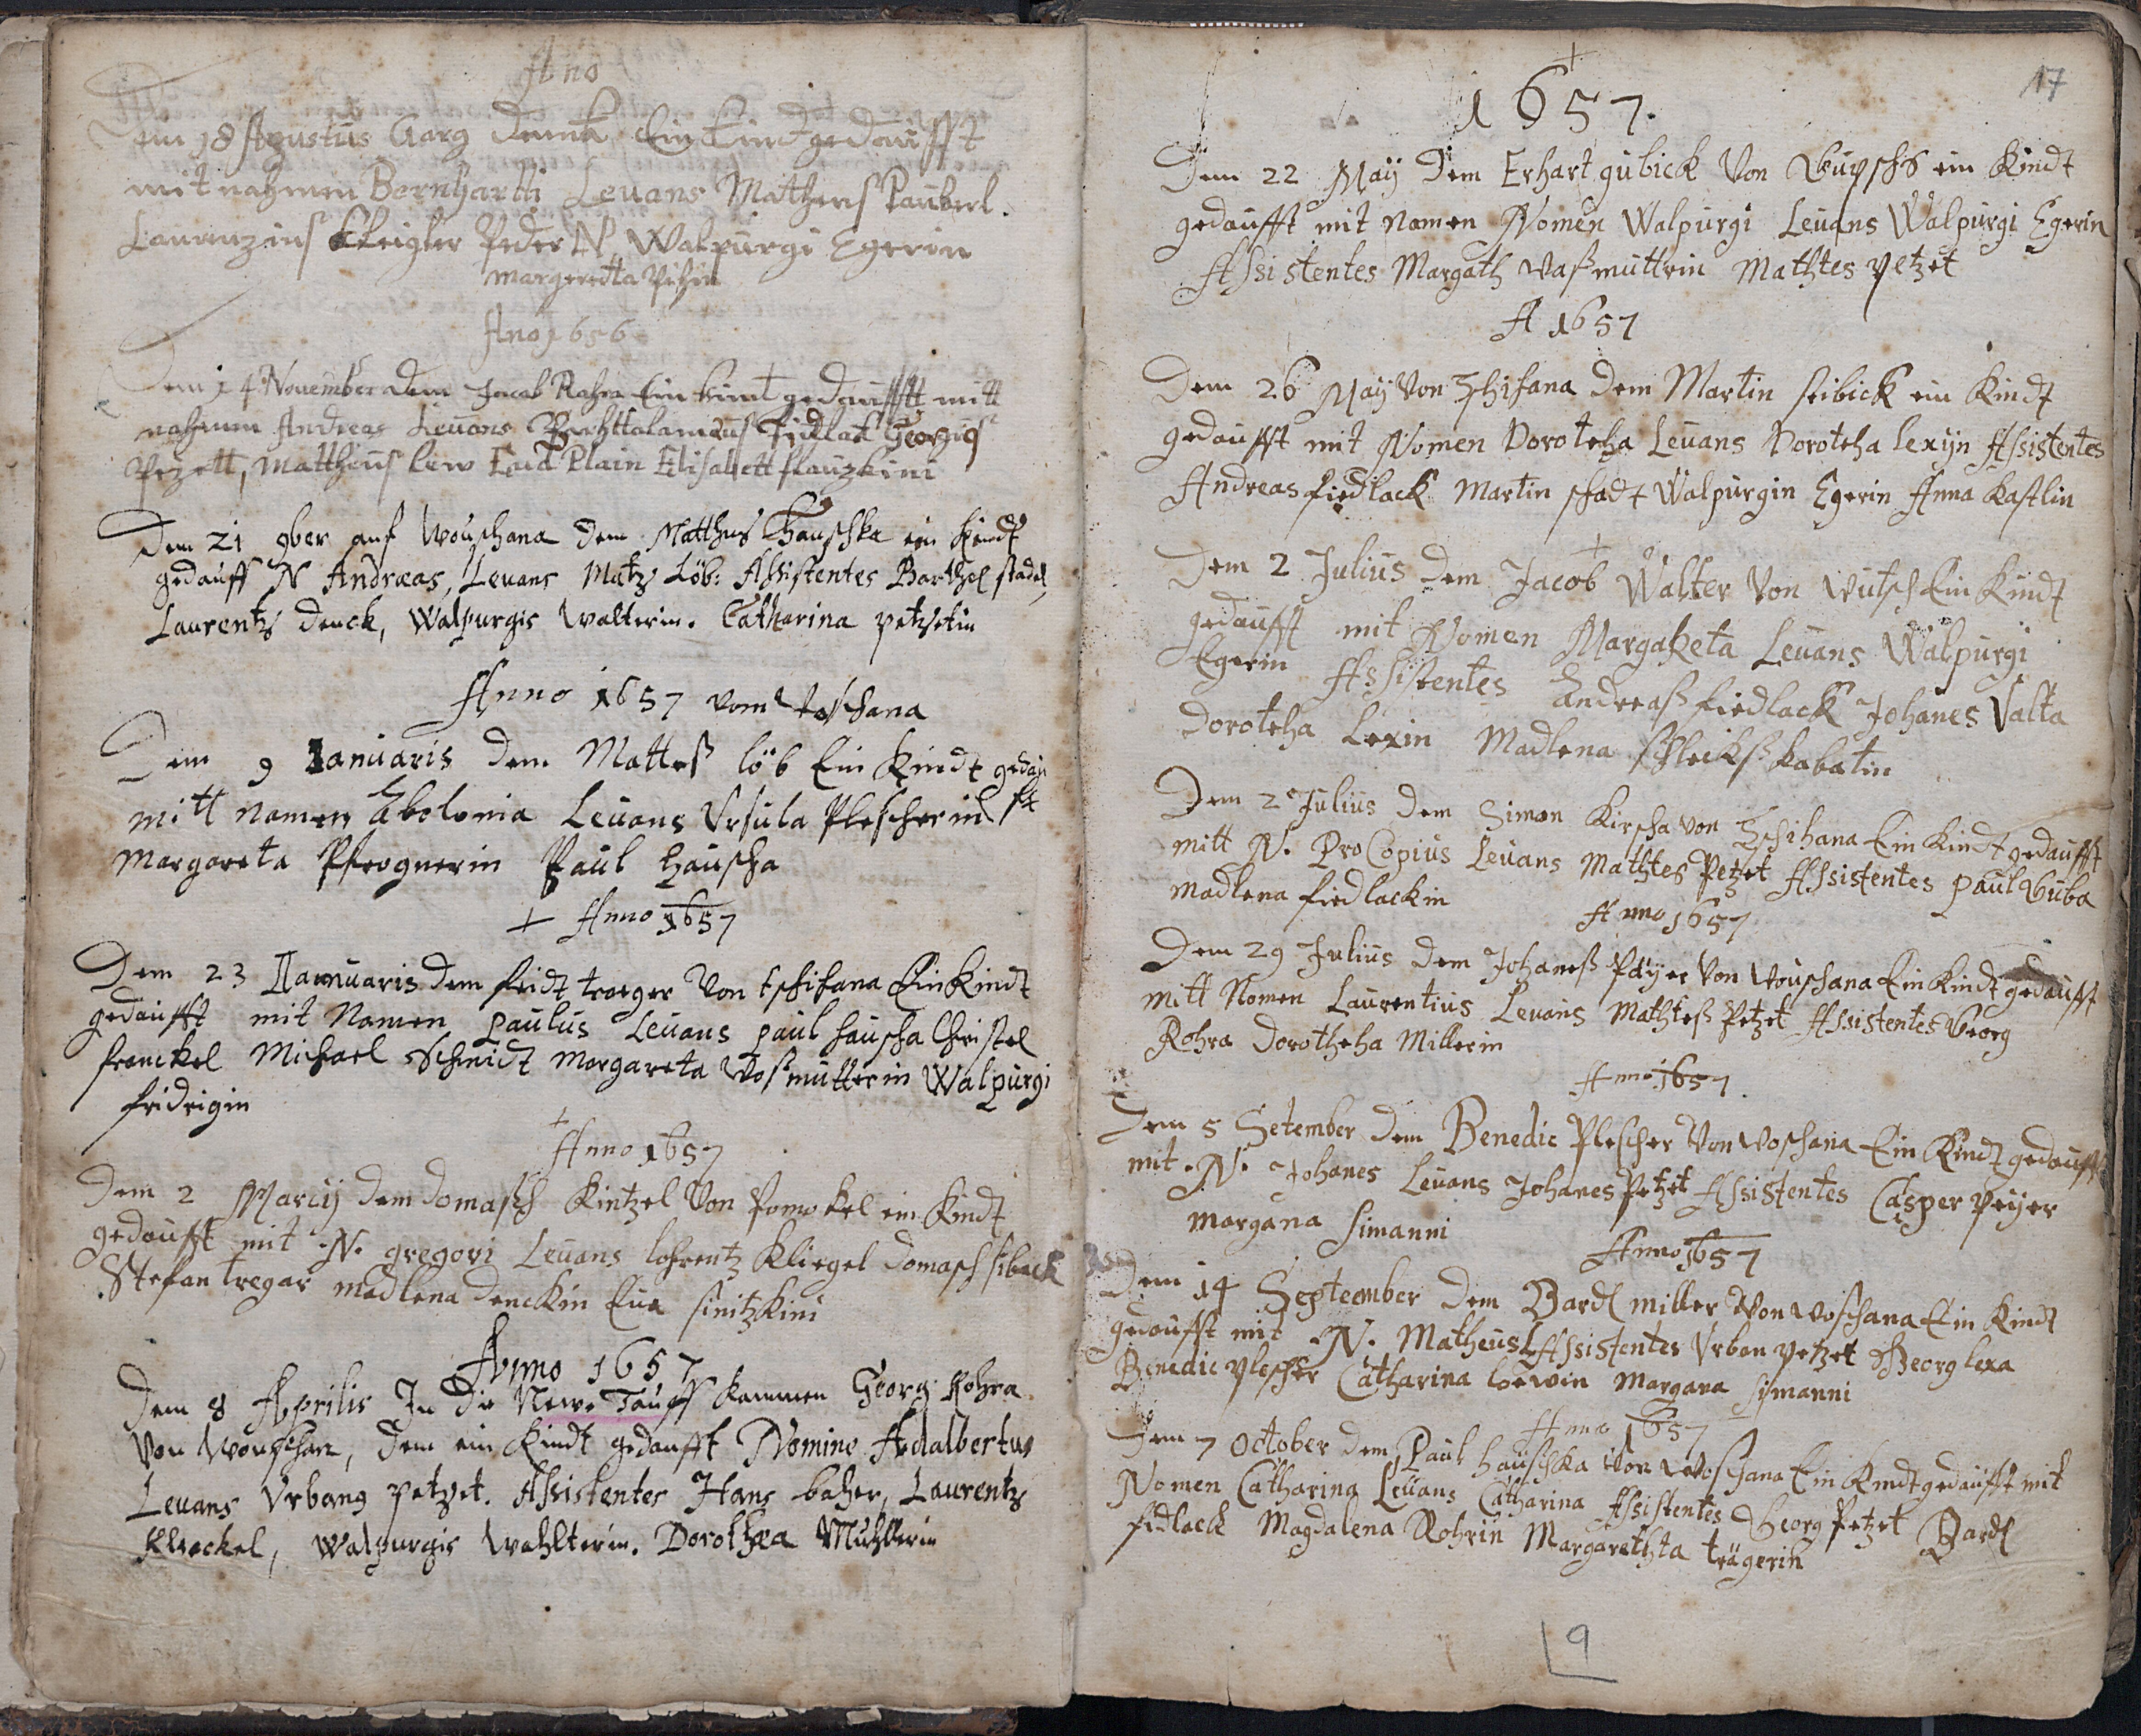 Ano
Dem 18 Agustus Garg denck Ein Kindt gedaufft
mit nahmen Bernhardi Levans Mathens Pauberl.
Laurenzius Kleigler Peder N Walpurgi Egerin
Margeredta
Ano 1656
Dem 14 November dem Jacob Rohra Ein kint gedaufftt mitt
nahmen Andreas Levans Barhttolameus fidlack Georgius
Pezett, Mattheus lew Plain Elisabett
Dem 21 9ber auf Wouschana dem Matthus Hauschka ein Kindt
gedauff N Andraeas, Levans Matz Löb: Assistentes Barthel stadel,
Laurentz denck, Walpurgis Walterin. Catharina petzetin
Anno 1657 vom Woschana
Dem 9 Januaris dem Mattes löb Ein Kindt gedau
fft
mitt namen Abolonia Levans Ursula Plescherin
Margareta Pfrognerin Paul Hauscha
+ Anno 1657
Dem 23 Januaris dem fridt traeger Von tschihana Ein Kindt
gedaufft mit Namen paulus Levans paul hauscha Christel
franckel Michael Schmidt Margareta Wosmutterin Walpurgi
fridrigin
+
Anno 1657
Dem 2 Marcij dem domasch Kintzel Von Pomokel ein Kindt
gedaufft mit N. gregori Levans lohrentz Kliegel domasch sibeck
Stefan tregar madlena denckin Eva sinitzkini
Anno 1657
Dem 8 Aprilis In die Newe Tauff kammen Georg Rohra
Von Wouschan, dem ein Kindt gedaufft Nomine Adalbertus
Levans Urbang petzet. Assistentes Hans baher, Laurentz
Kleckel, Walpurgis Wahlterin. Dorothea Muhllerin
17
+
1657.
Dem 22 May Dem Erhart gubick Von ein Kindt
gedaufft mit namen Nomen Walpurgi Levans Walpurgi Egerin
Assistentes Margath Vasmuttrin Mathtes petzet
A 1657
Dem 26 May Von Zhihana dem Martin sibick ein Kindt
gedaufft mit Nomen Doroteha Levans Doroteha lexijn Assistentes
Andreas fiedlack Martin schadt Walpurgin Egerin Anna Kastlin
+
Dem 2 Julius dem Jacob Walter Von Wutsch Ein Kindt
gedaufft mit Nomen Margareta Levans Walpurgi
Egerin Assistentes Andreas fiedlack Johanes Valta
doroteha Lexin Madlena kabatin
Dem 2 Julius dem Simon Kirscha von Tschihana Ein Kindt gedaufft
mitt N. ProCopius Levans Mathtes Petzet Assistentes paul Guba
Madlena fiedlackin
Anno 1657
Dem 29 Julius dem Johannes Payer Von Wouschana Ein Kindt gedaufft
mitt Nomen Laurentius Levans Mathtes Petzet Assistentes Georg
Rohra Dorotheha Millerin
Anno 1657
Dem 5 Setember dem Benedic Plescher Von Woschana Ein Kindt gedaufft
mit N. Johanes Levans Johanes Petzet Assistentes Casper Peyer
Margana Simanni
Anno 1657
Dem 14 September dem Bardl Miller Von Woschana Ein Kindt
gedaufft mit N. Matheus L Assistentes Urban Petzet Georg lexa
Benedic plescher Catharina loewin Margana Simanni
Anno 1657
Dem 7 October dem Paul hauschka Von Woschana Ein Kindt gedaufft mit
Nomen Catharina Levans Catharina Assistentes Georg Petzet Bardl
fidlack Magdalena Rohrin Margarethta trägerin
9